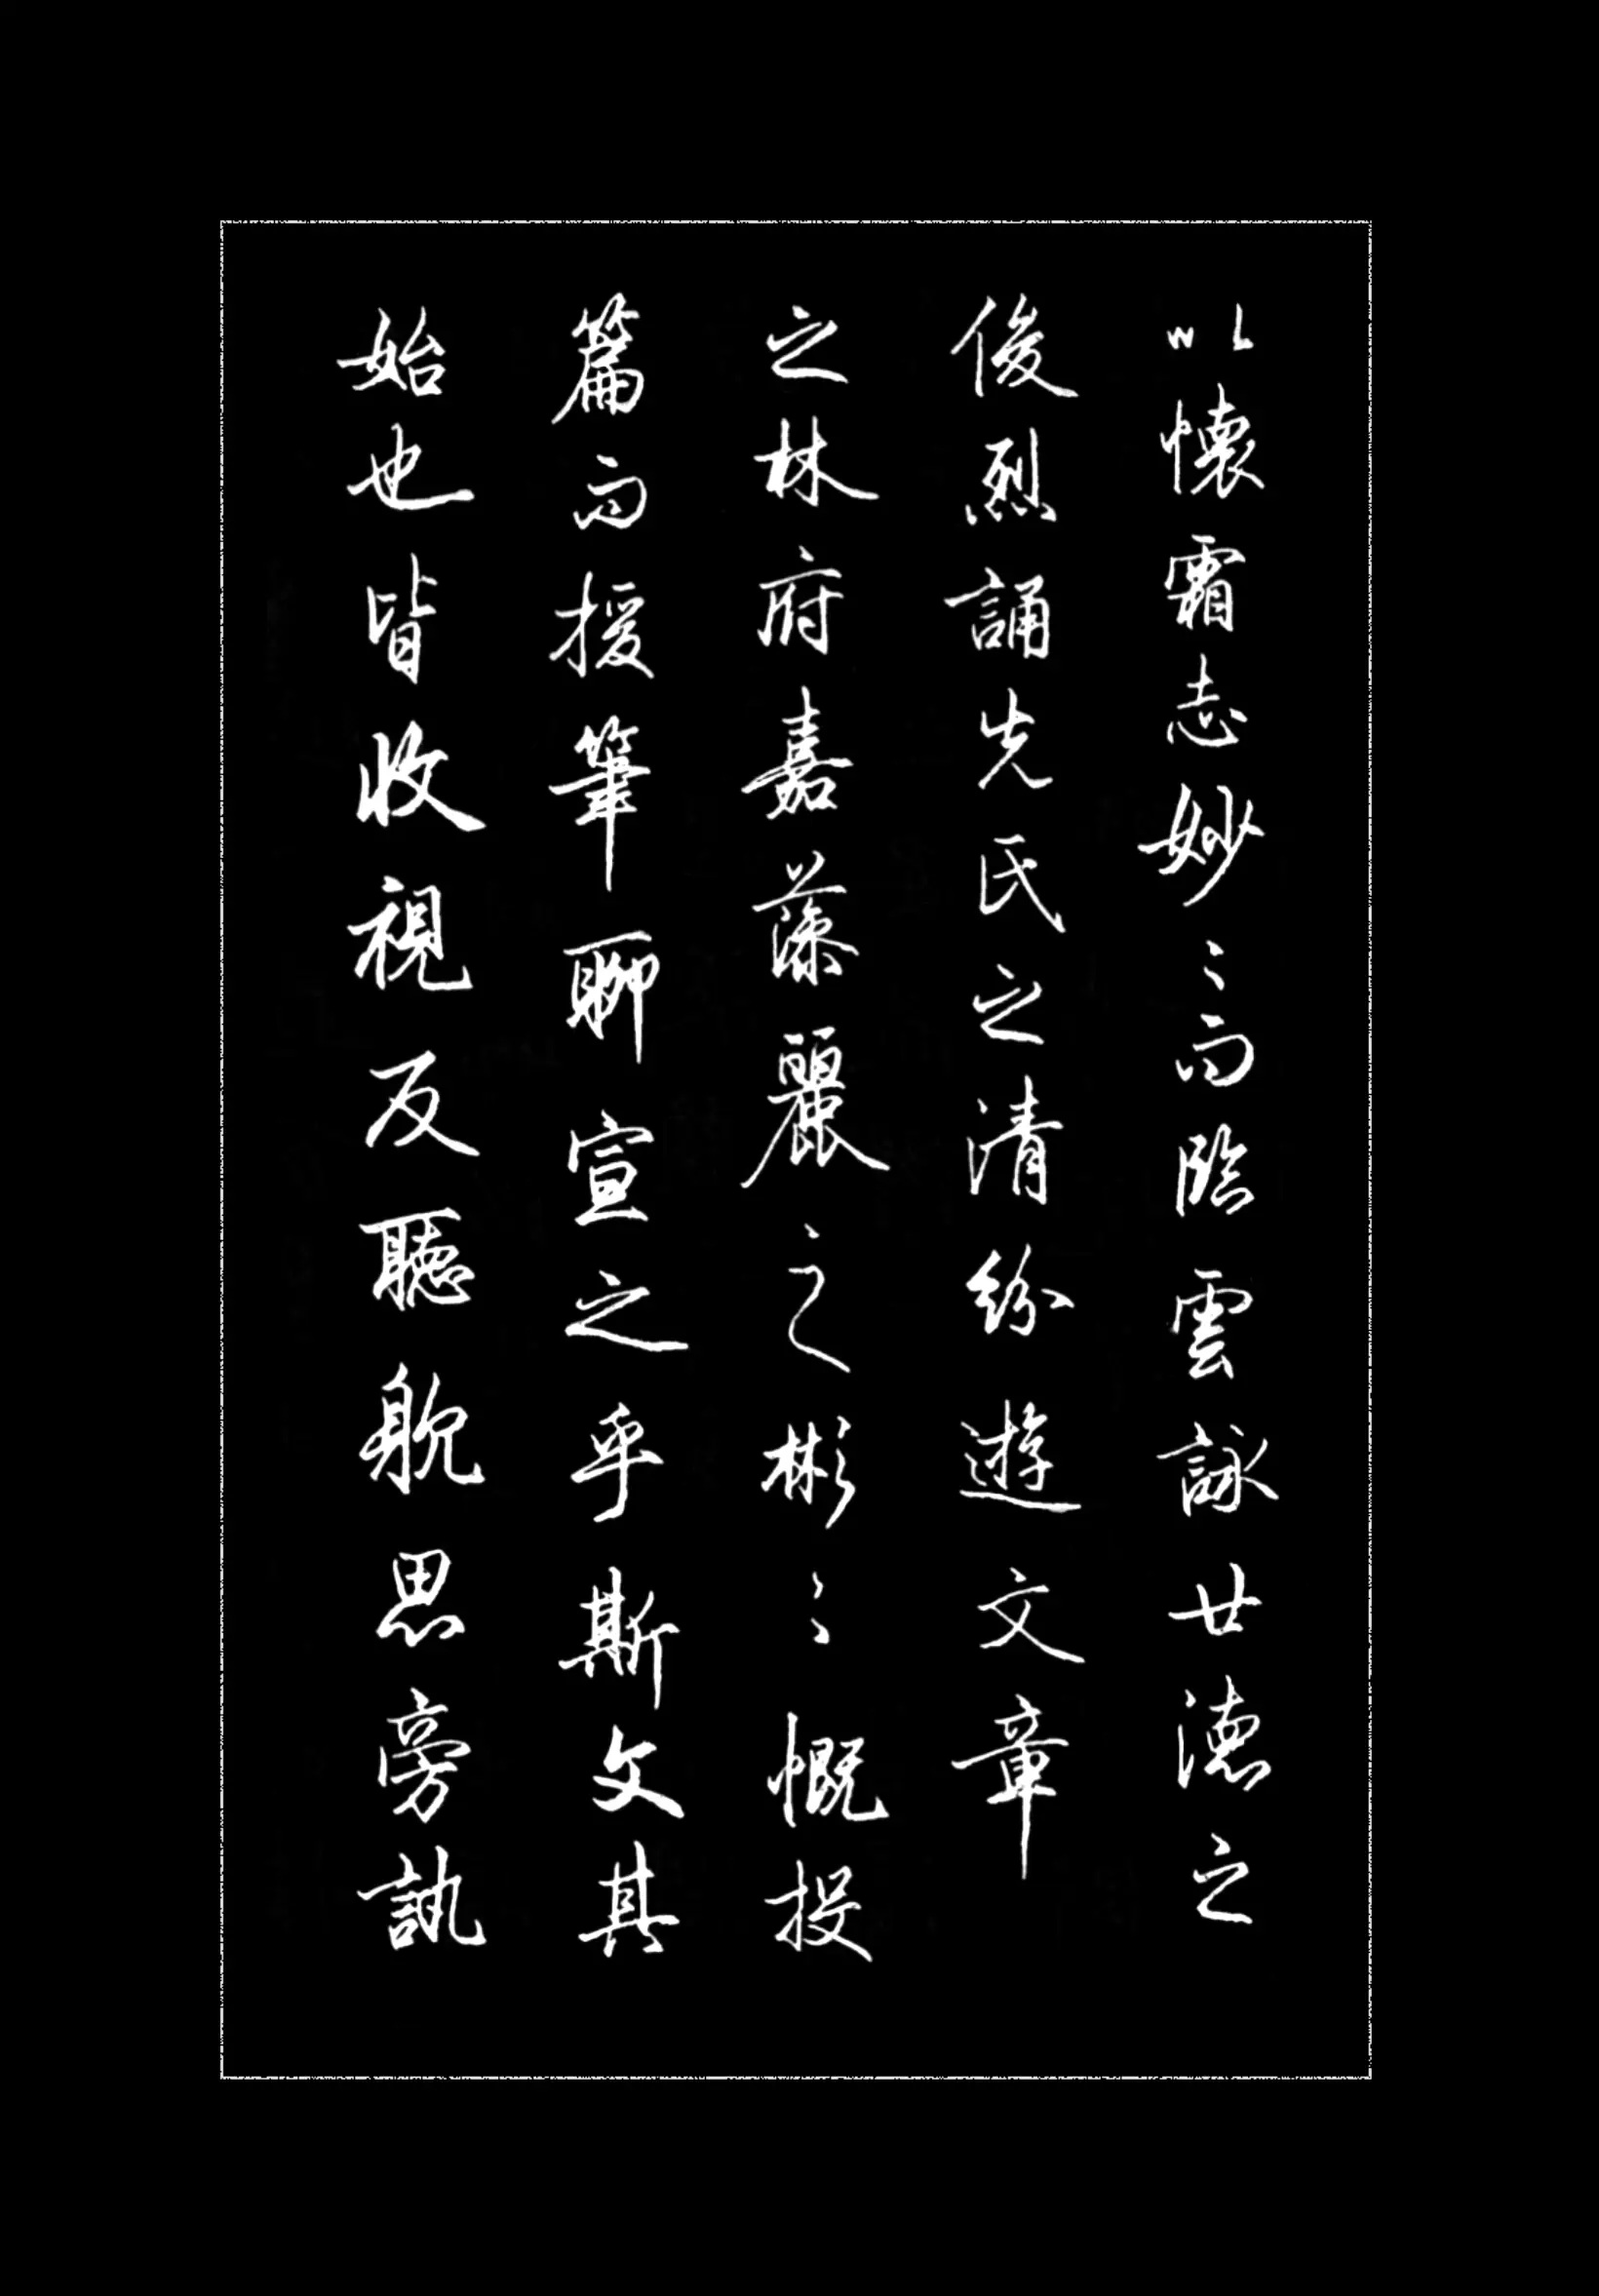 以懷霜志妙〻而臨雲詠廿德之
俊烈誦先氏之清紛遊文章
之林府嘉藻麗之彬〻慨投
篇而援筆聊宣之乎斯文其
始也皆收視反聽躭思旁訊